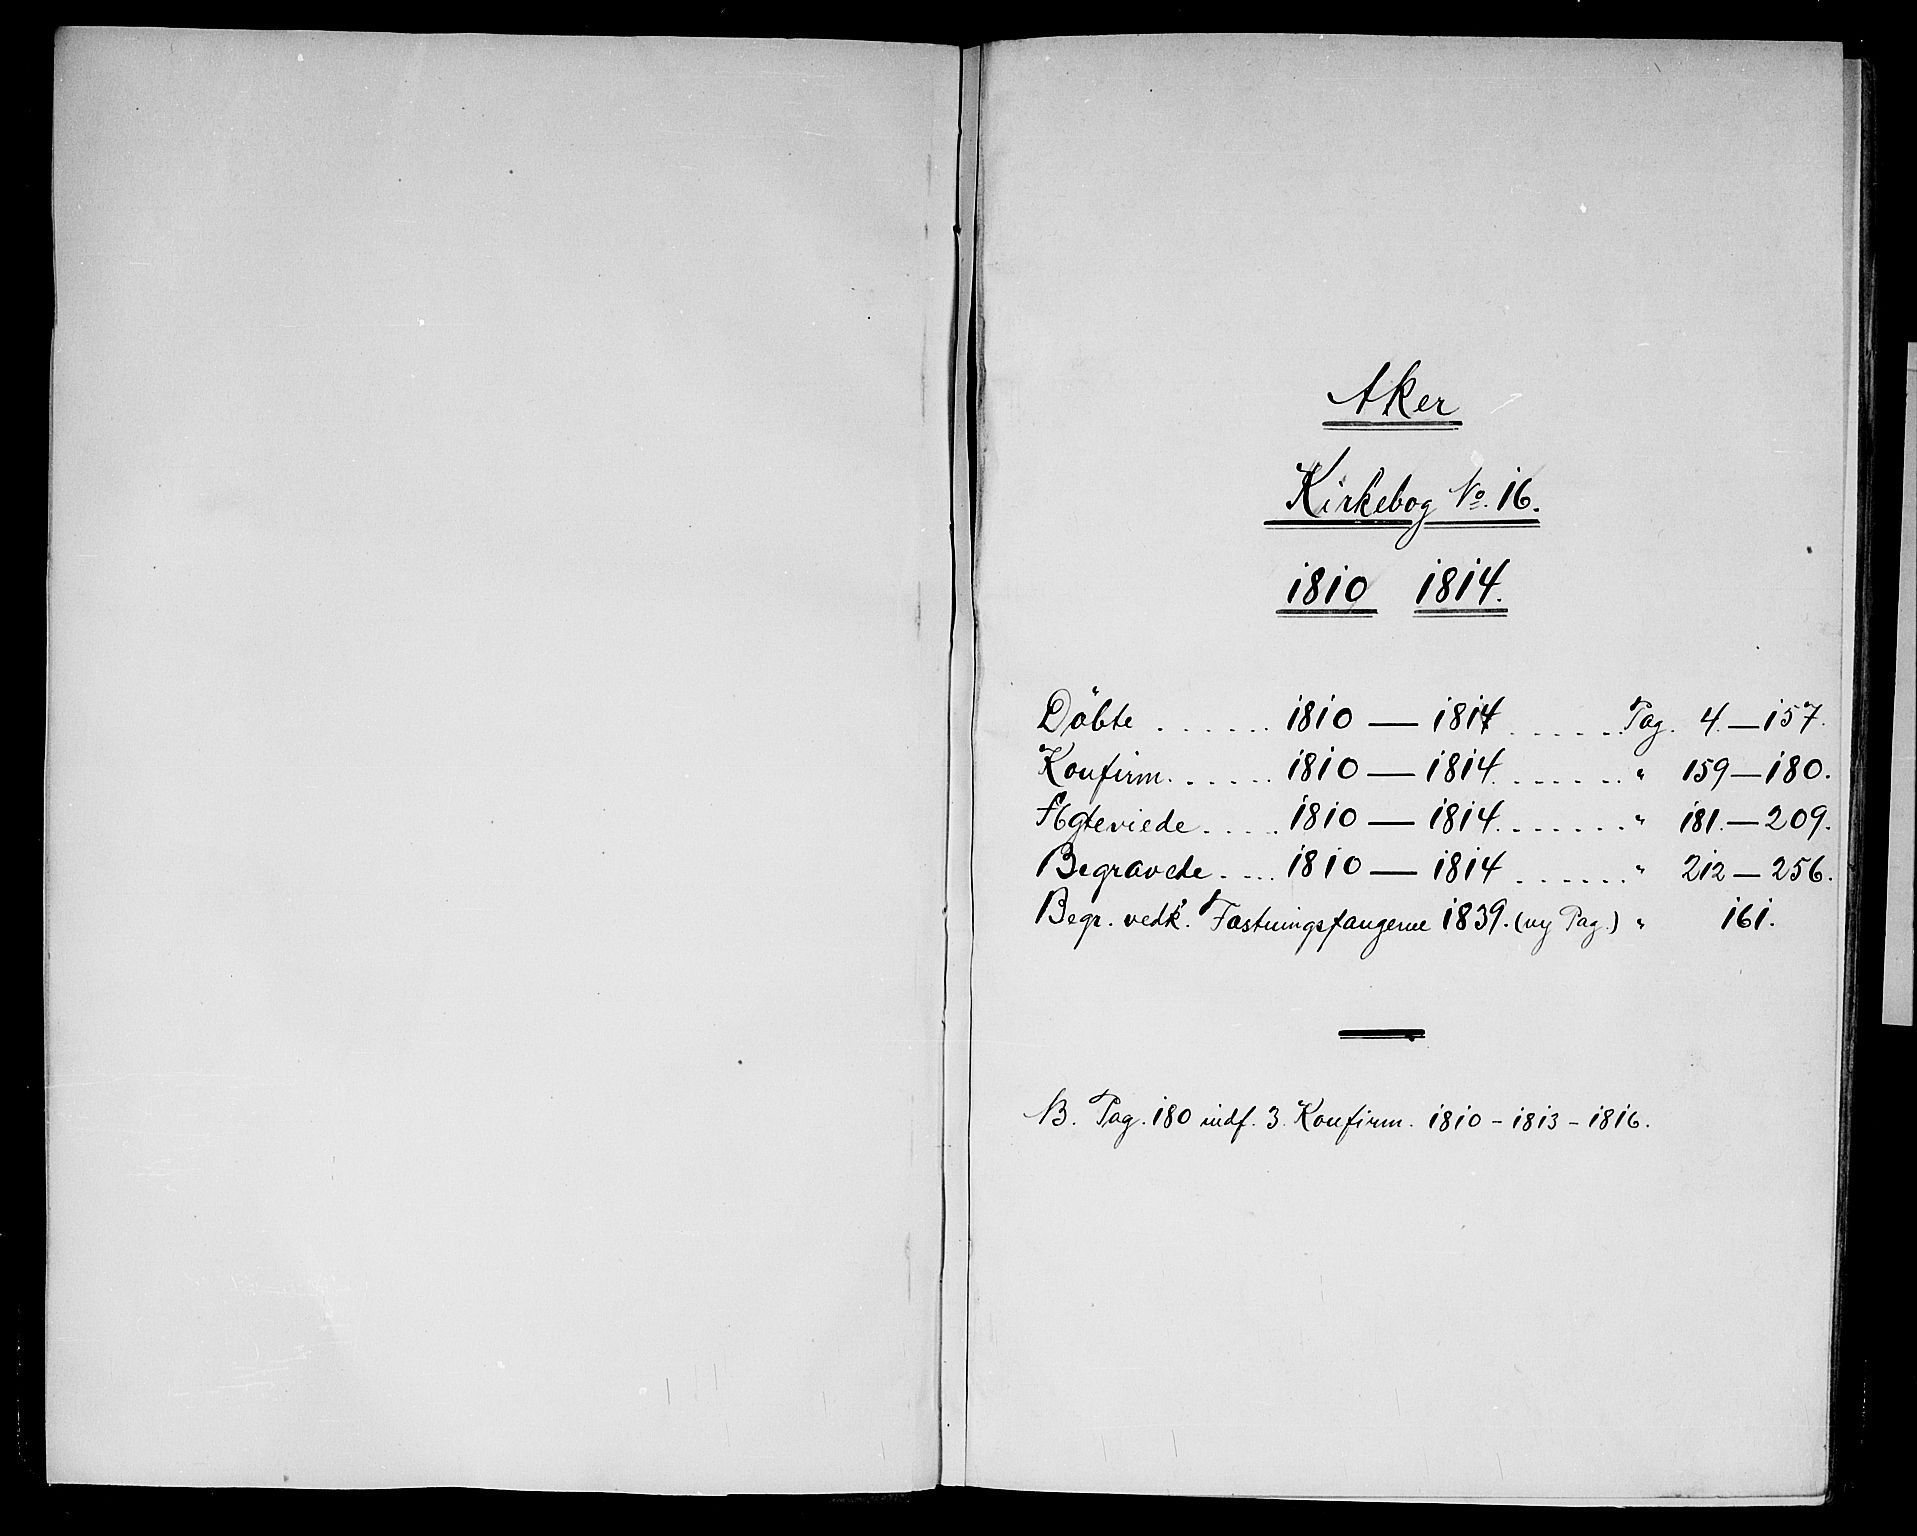 Aker
Kirkebog No. 16.
1810 1814.
Döbte . . . . . . 1810 — 1814 . . . . . . Pag. 4. — 157.
Konfirm. . . . . . 1810 — 1814 . . . . . . " 159 — 180.
Ægteviede . . . . 1810 — 1814. . . . . . . " 181. — 209.
Begravede . . . . 1810 — 1814 . . . . . . " 212 — 256.
Begr. vedk. Fæstningsfangerne 1839. (ny Pag.) " 161.
NB. Pag. 180 indf. 3 Konfirm. 1810 - 1813 - 1816.